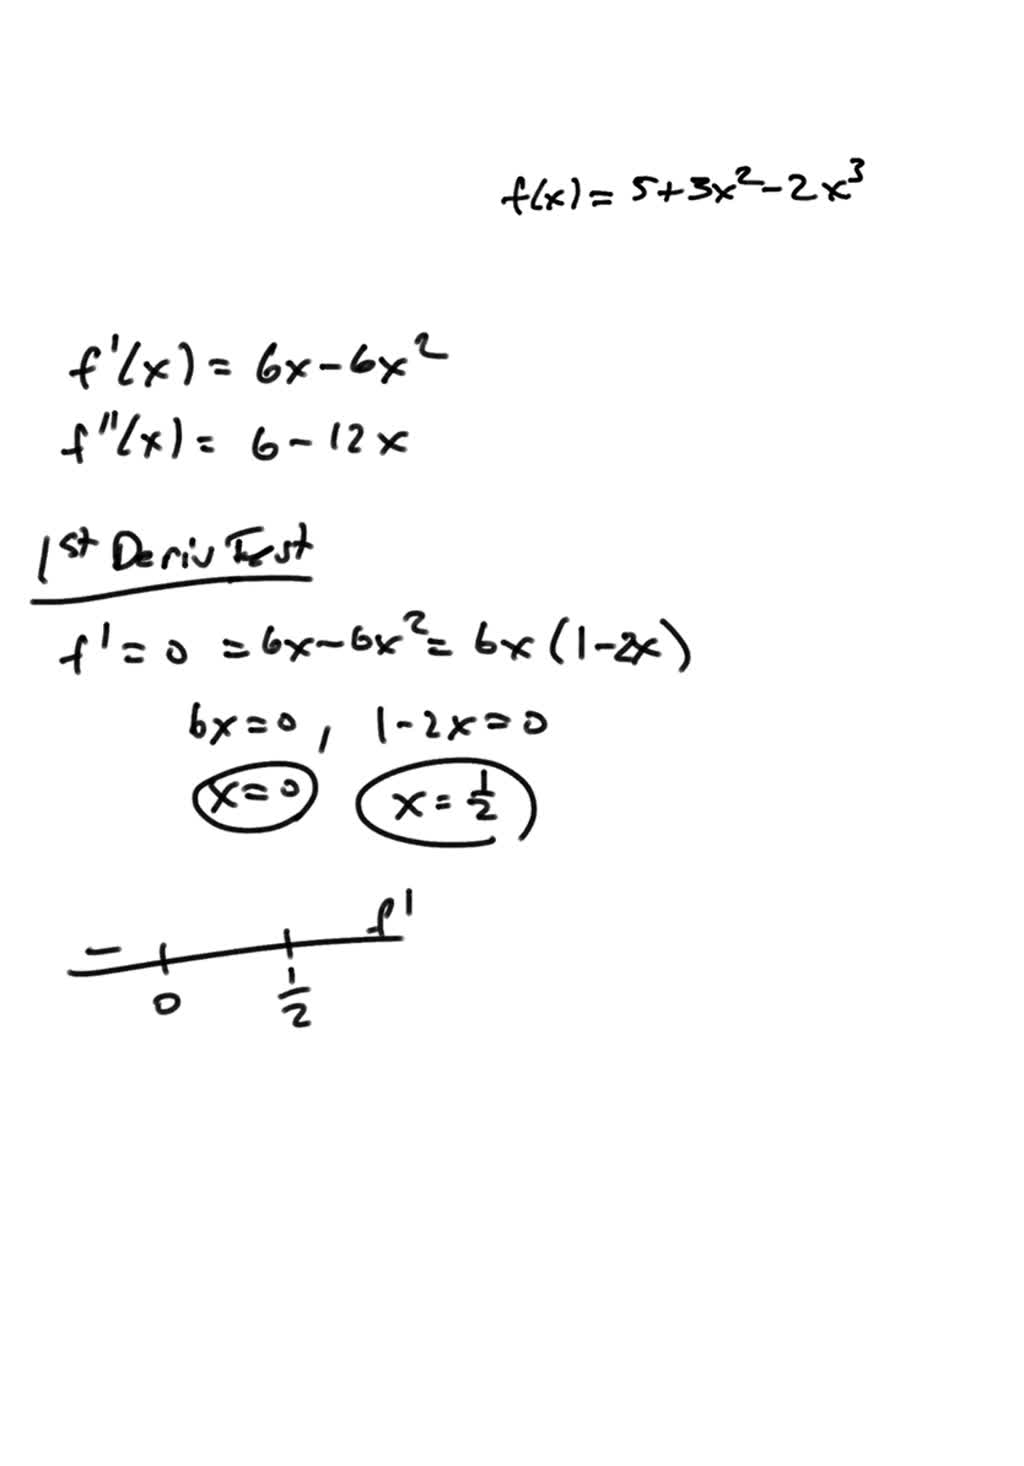 f(x) = 5+3x²-2x³
f'(x) = 6x-6x²
f"(x) = 6-12x
1st Deriv Test
f' = 0 = 6x-6x² = 6x(1-2x)
6x=0, 1-2x=0
x=0 x=1/2
f'
-
0 1/2